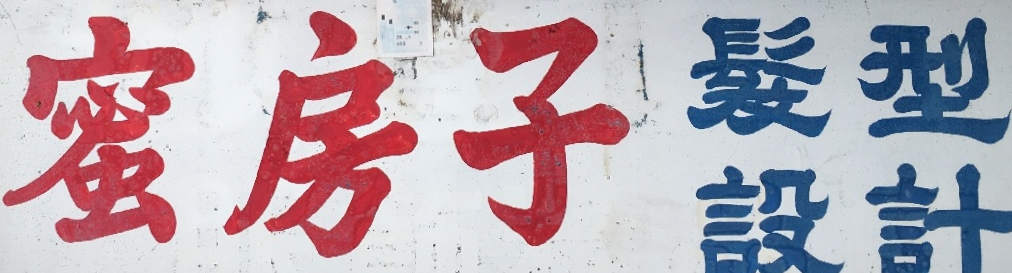 蜜房子
髮型
設計